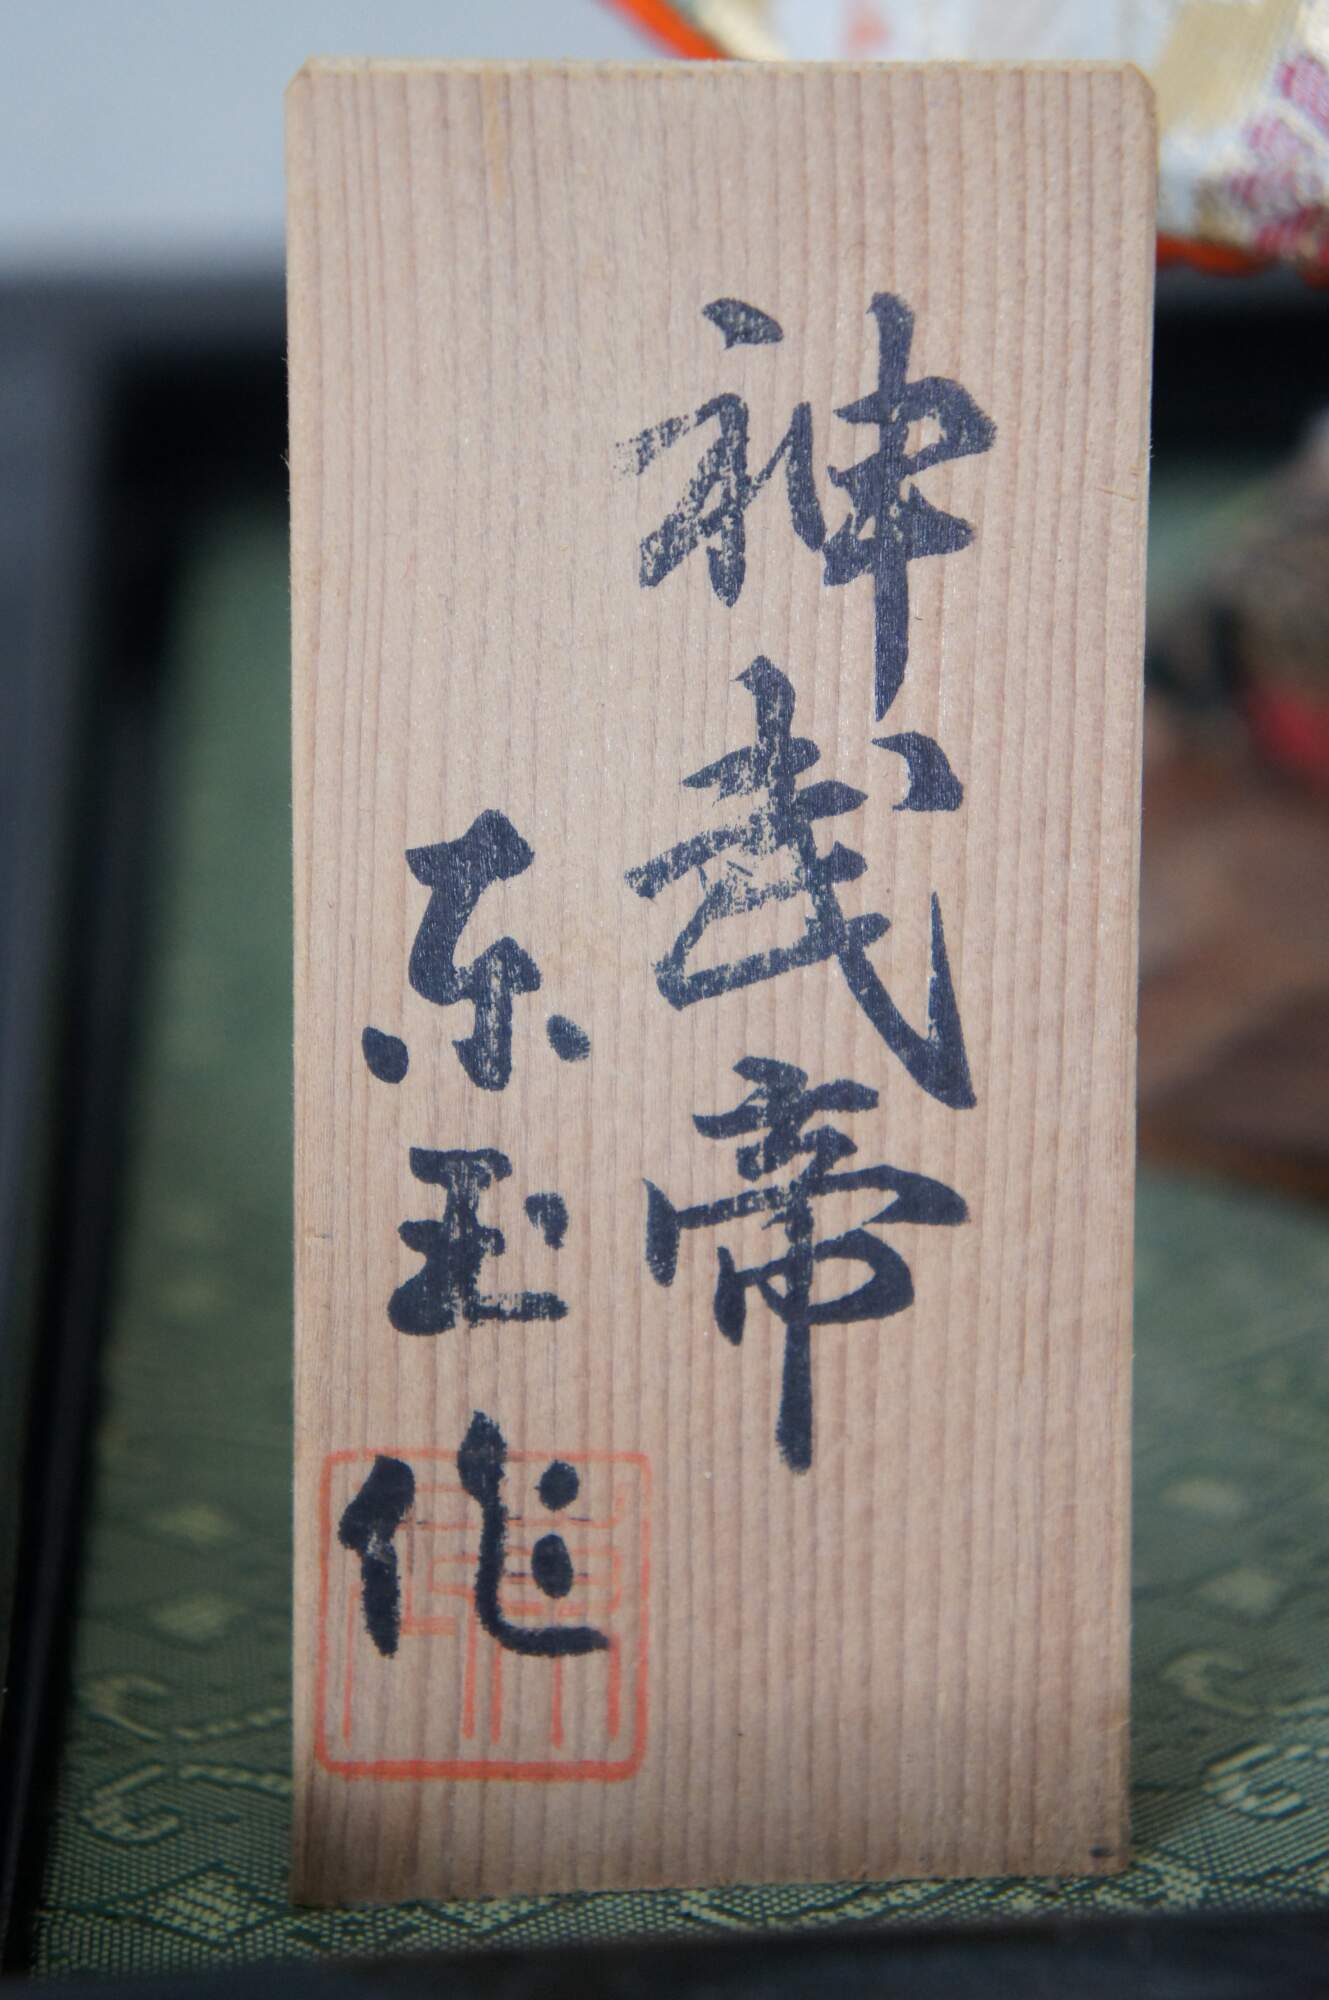 神武帝
东玉作